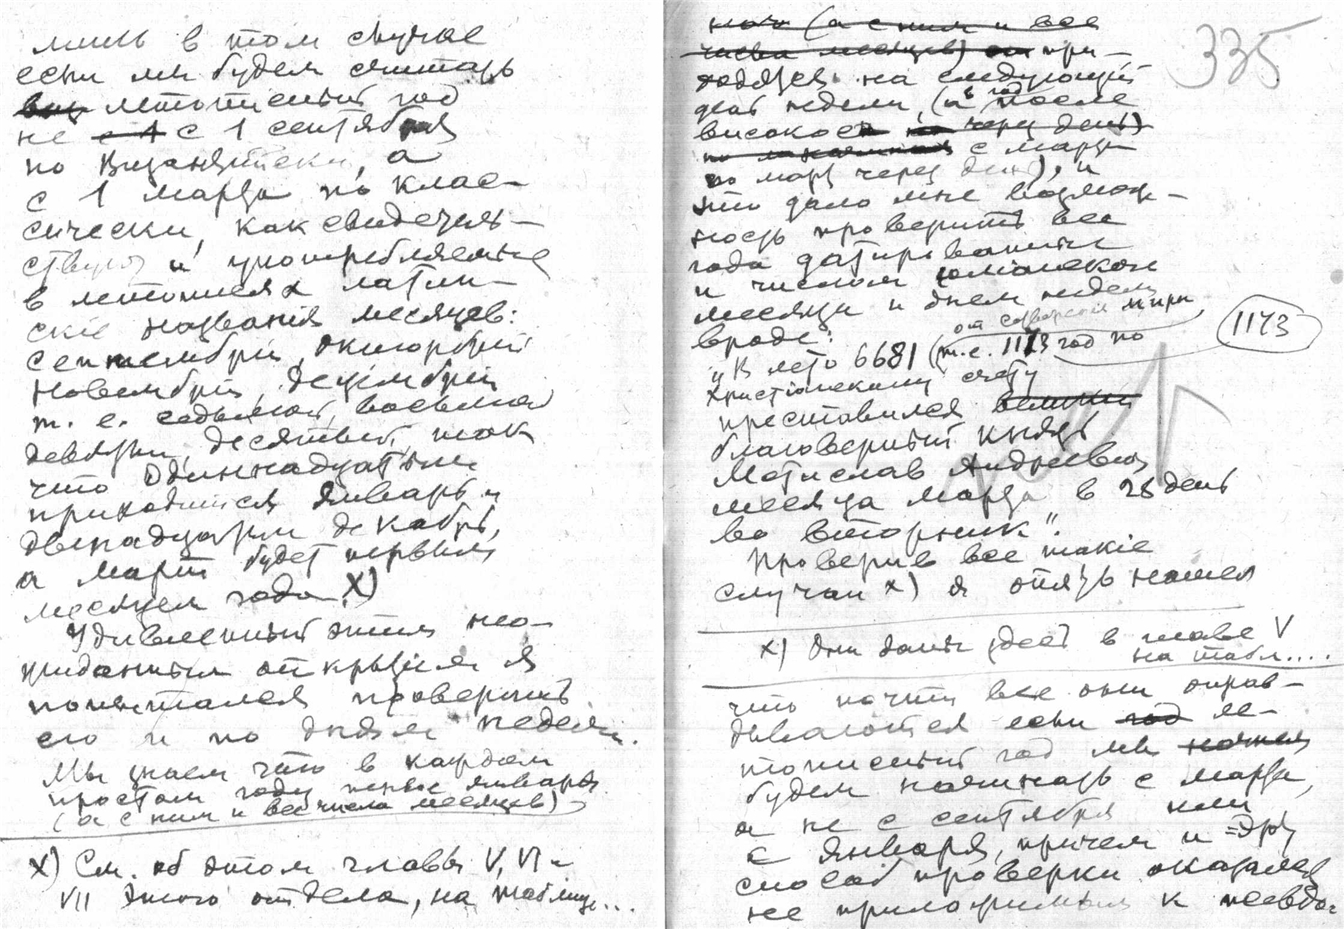 лишь в том случае
если мы будем считать
летописный год
не с 1 сентября
по Византийски, а
с 1 марта по клас-
сически, как свидетель-
ствуют и употребляемые
в летописях латин-
скіе названія месяцев:
септембрій, окторбрій
новембрій, децембрій
т. е. седьмой, восьмой
девятый, десятый, так
что одиннадцатым
приходится январь, и
двенадцатым декабрь,
а март будет первым
месяцем года X)
Удивленный этим нео-
жиданным открытіем я
попытался проверить
его и по дням недели.
Мы знаем что в каждом
простом году первое января
(а с ним и все числа месяцев)
X) См. об этом главы V, VI и
VII этого отдела, на таблице...
335
(а с ним и все
числа месяцев) при-
ходятся на следующий
день недели, (а в год после
високоса через день)
с марта
по март через день), и
это дало мне возмож-
ность проверить все
года датированные
и числом юліанскон
месяца и днем недели
вроде:
от сотворенія мира
„В лето 6681 (т. е. 1173 год по
1173
христіанскому счету
преставился
благоверный князь
Мстислав Андреевич
месяца марта в 28 день
во вторник".
Проверив все такіе
случаи x) я опять нашел
x) Они даны здесь в главе V
на табл....
что почти все они оправ-
дываются если год ле-
тописный год мы начнем
будем начинать с марта,
а не с сентября или
с января, причем и этот
способ проверки оказался
не приложимым к псевдо-